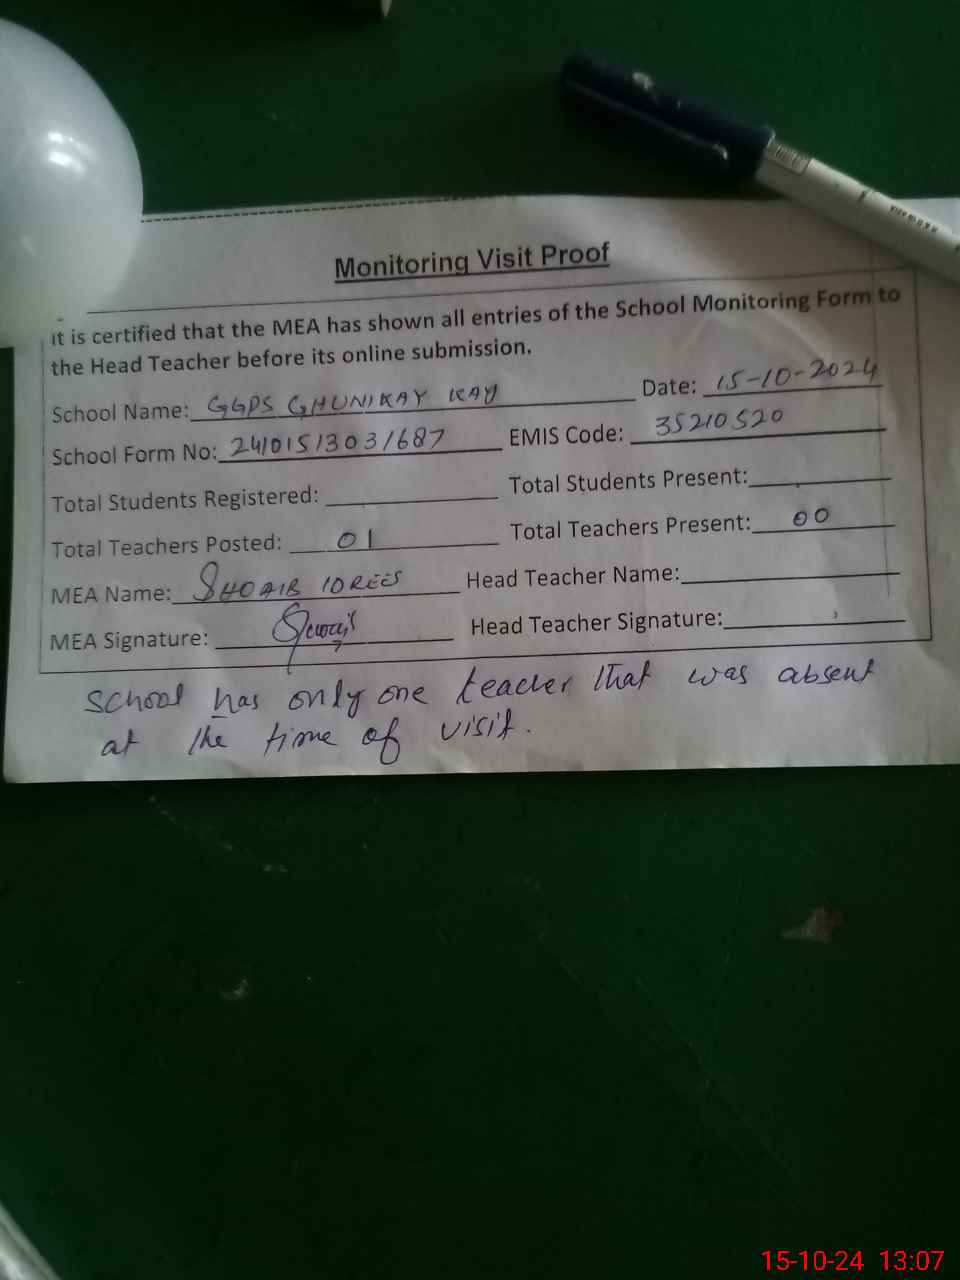 Monitoring Visit Proof
It is certified that the MEA has shown all entries of the School Monitoring Form to
the Head Teacher before its online submission.
School Name: GGPS GHUNIKAY KAY Date: 15-10-2024
School Form No: 24101513031687 EMIS Code: 35210520
Total Students Registered: Total Students Present:
Total Teachers Posted: 01 Total Teachers Present: 00
MEA Name: SHOAIB IDREES Head Teacher Name:
MEA Signature: Head Teacher Signature:
School has only one teacher that was absent
at the time of visit.
15-10-24 13:07